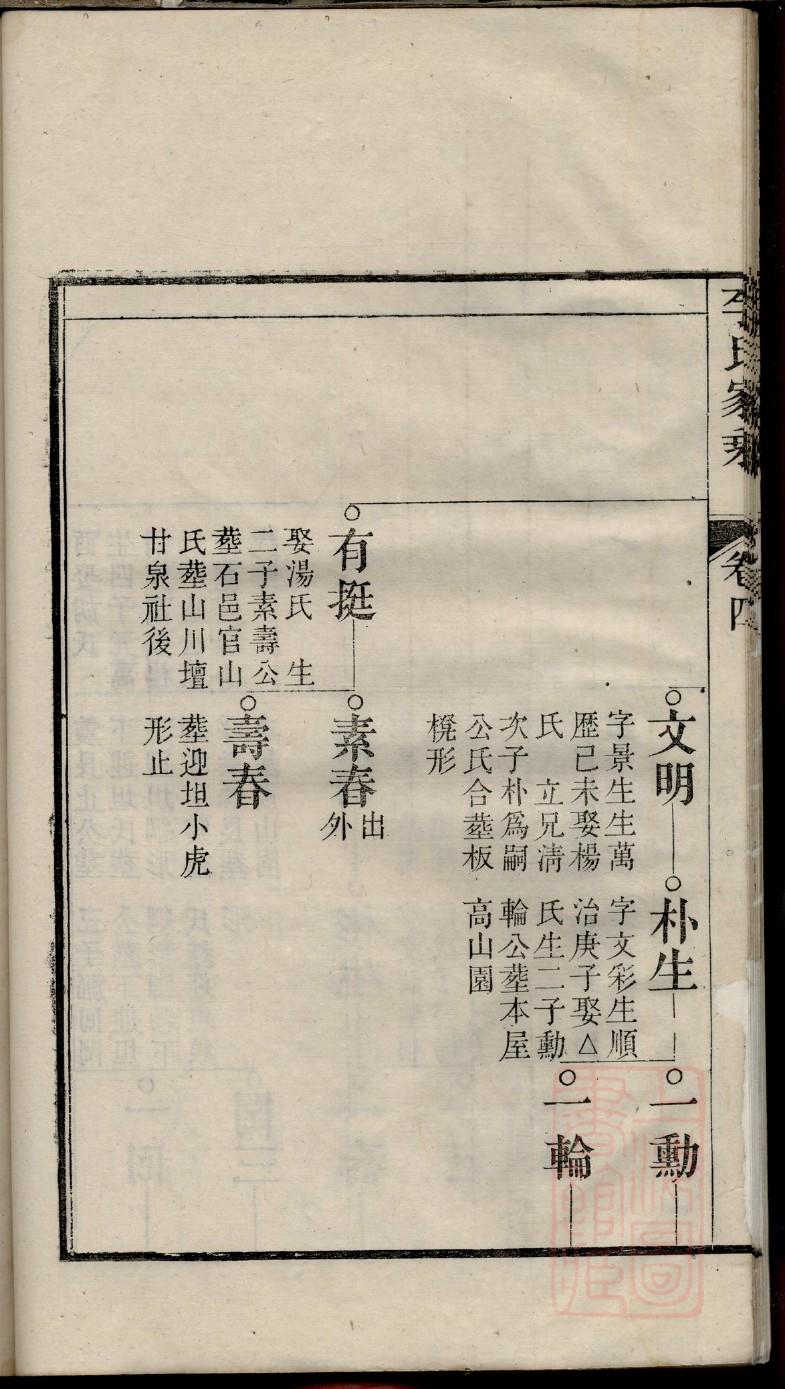 李氏家乘
卷四
文明
字景生生萬
歷己未娶楊
氏　立兄淸
次子朴爲嗣
公氏合塟板
櫈形
朴生
字文彩生順
治庚子娶△
氏生二子勳
輪公塟本屋
高山園
一勳
一輪
有挺
娶湯氏　生
二子素壽公
塟石邑官山
氏塟山川壇
甘泉社後
素春
出
外
壽春
塟迎坦小虎
形止